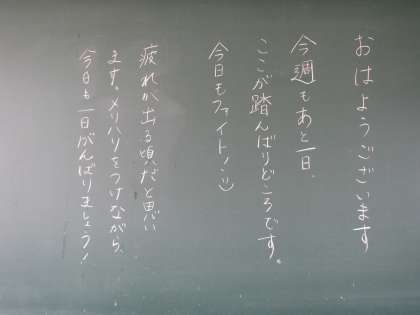 おはようございます
今週もあと一日、
ここが踏んばりどころです。
今日もファイト!:)
疲れが出る頃だと思い
ます。メリハリをつけながら、
今日も一日がんばりましょう!